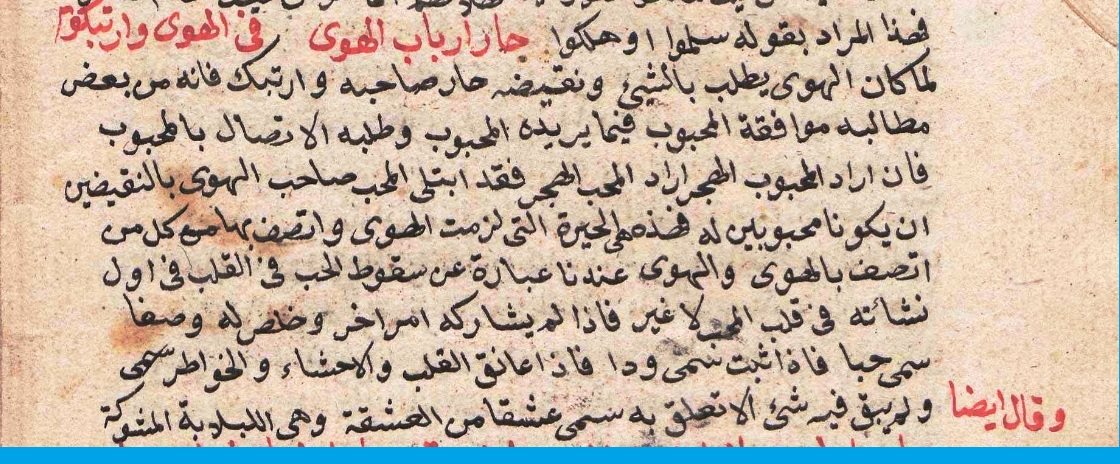 فهذا المراد بقوله سلموا او هلكوا حار ارباب الهوى في الهوى وارتبكوا
لما كان الهوى يطلب بالشيئ ونقيضه حار صاحبه وارتبك فانه من بعض
مطالبه موافقة المحبوب فيما يريده المحبوب وطلبه الاتصال بالمحبوب
فان اراد المحبوب الهجر اراد المحب الهجر فقد ابتلى المحب صاحب الهوى بالنقيضين
ان يكونا محبوبين له فهذه هي الحيرة التي لزمت الهوى واتصف بها مع كل من
اتصف بالهوى والهوى عندنا عبارة عن سقوط الحب في القلب في اول
نشائته في قلب المحب لا غير فاذا لم يشاركه امر اخر وخلص له وصفا
سمى حبا فاذا ثبت سمى ودا فاذا عانق القلب والاحشاء والخواطر سمى
ولم يبق فيه شئ الا تعلق به سمى عشقا من العشقة وهي اللبلابة المشوكة
وقال ايضا